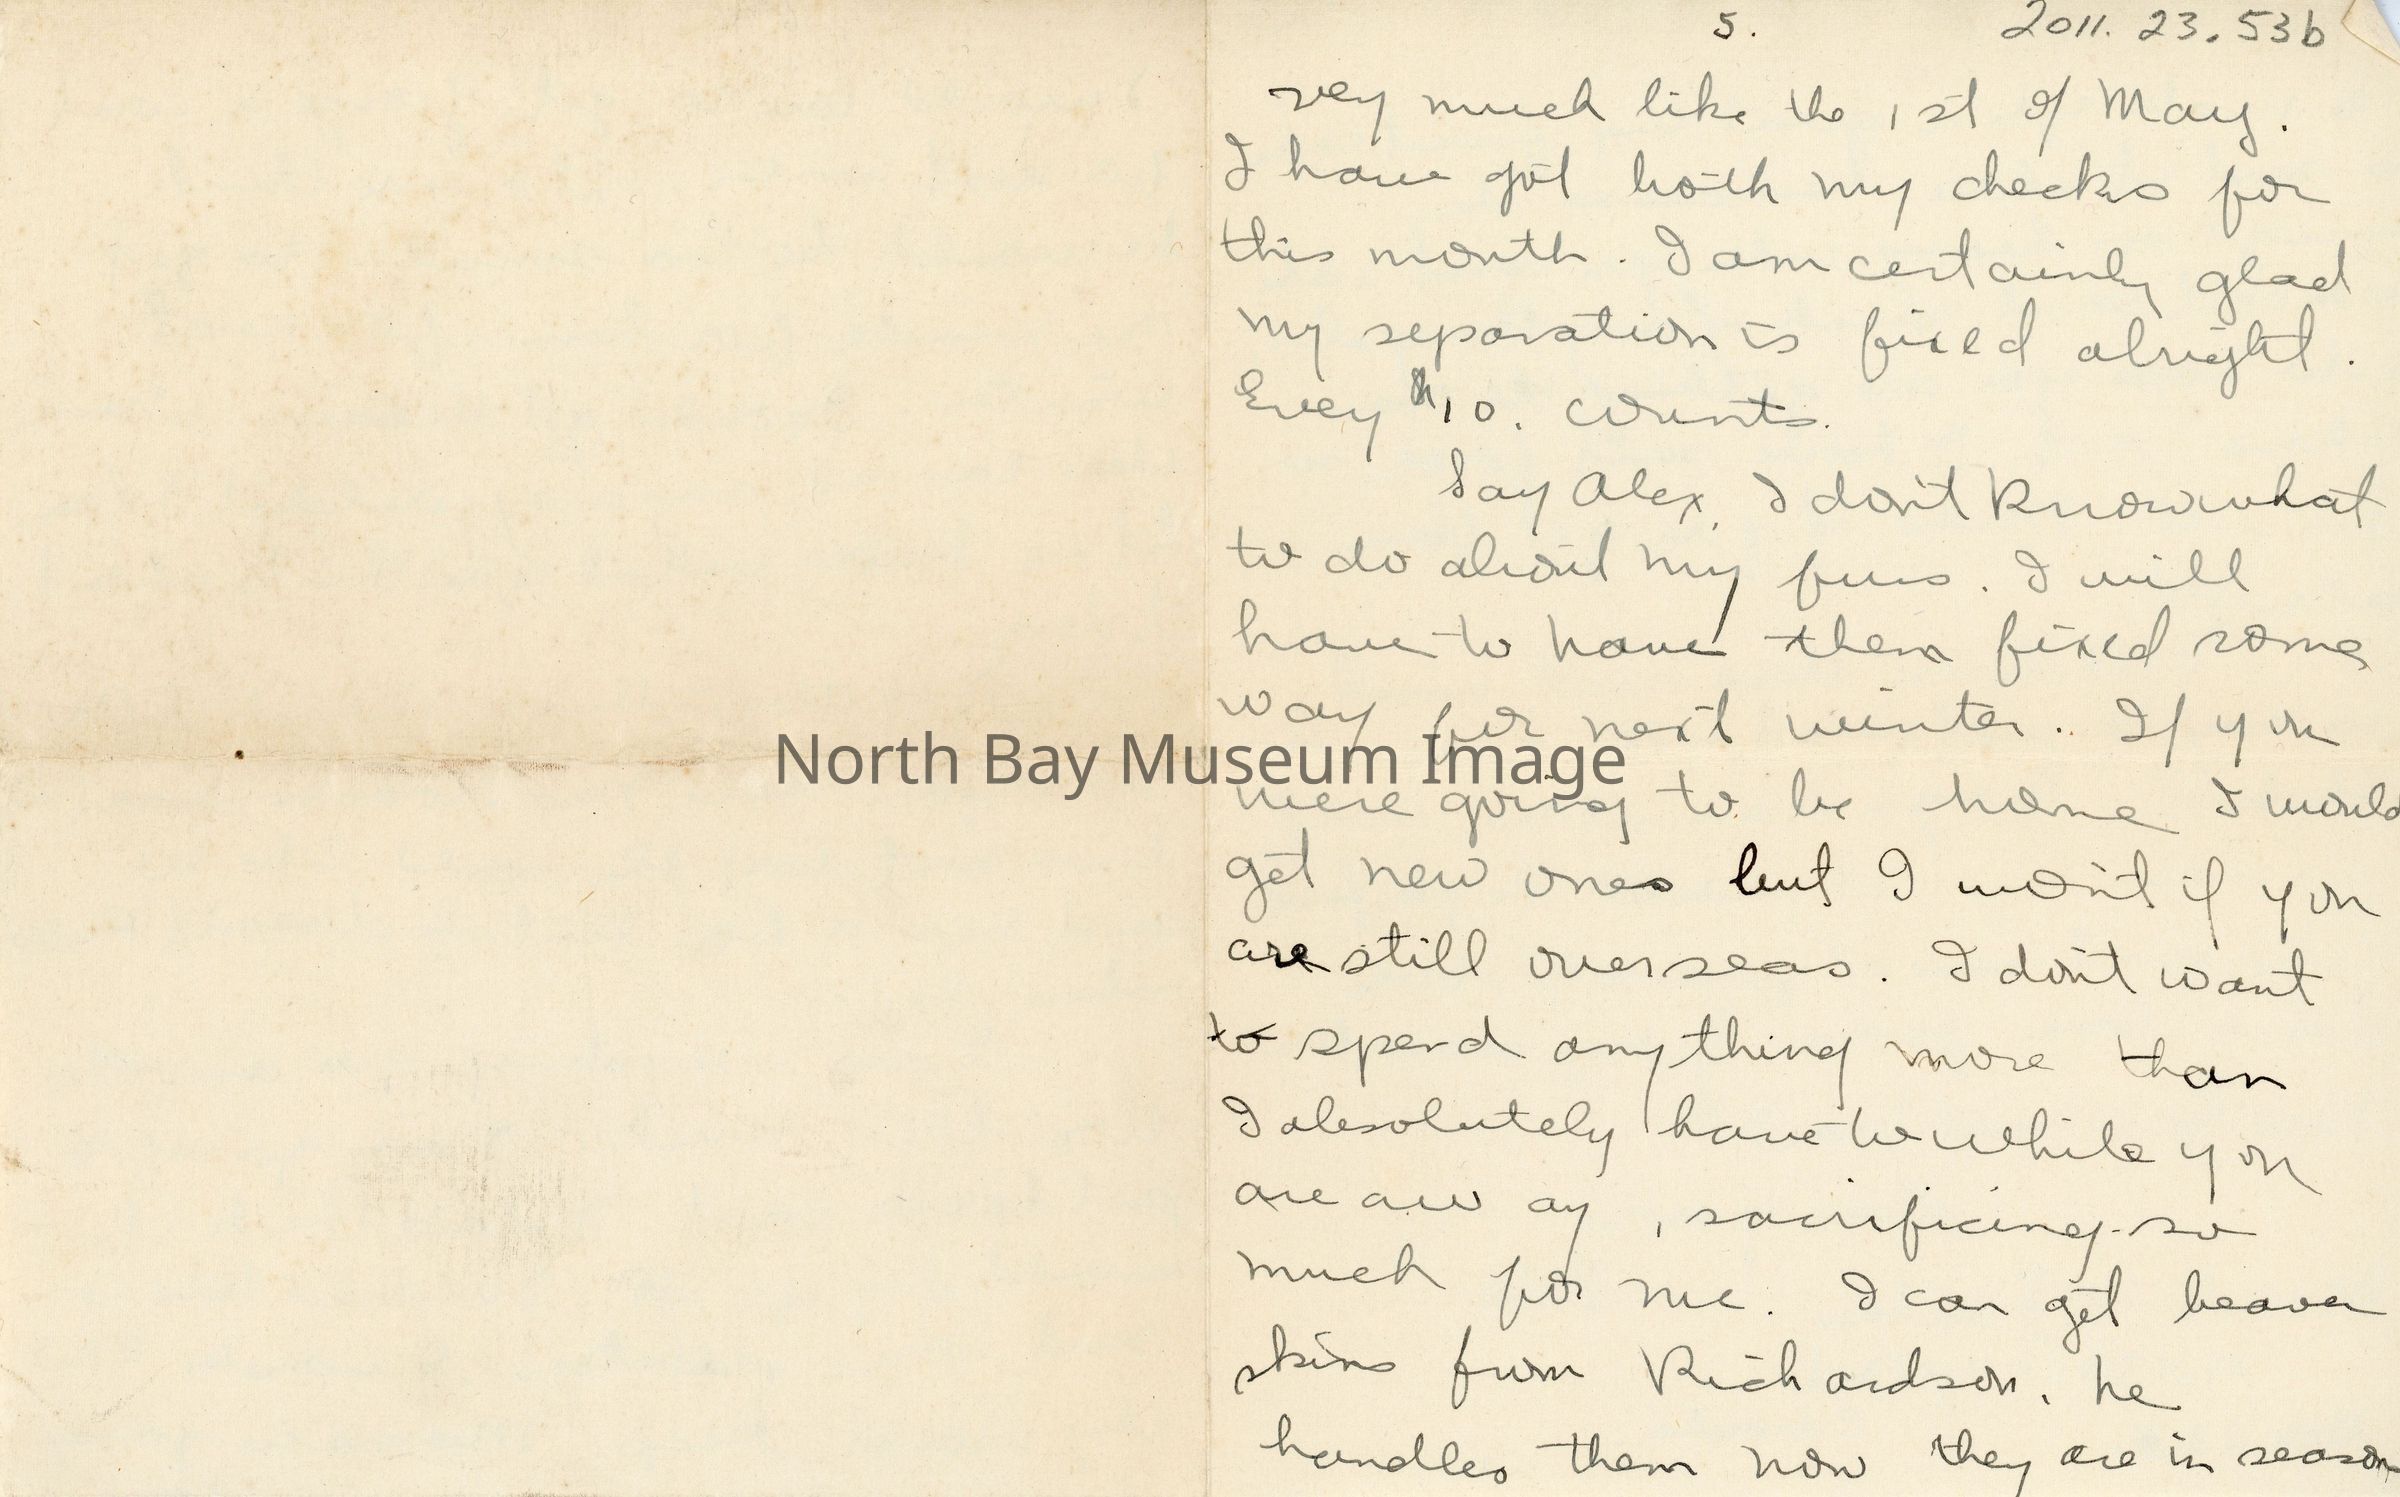 5. 2011. 23. 53b
very much like the 1st of May.
I have got both my checks for
this month. I am certainly glad
my separation is fixed alright.
Every $10. counts.
Say Alex, I don't know what
to do about my furs. I will
have to have them fixed some
way for next winter. If you
North Bay Museum Image
were going to be home I would
get new ones but I won't if you
are still overseas. I don't want
to spend anything more than
I absolutely have to while you
are away, sacrificing so
much for me. I can get beaver
skins from Richardson, he
handles them now they are in season